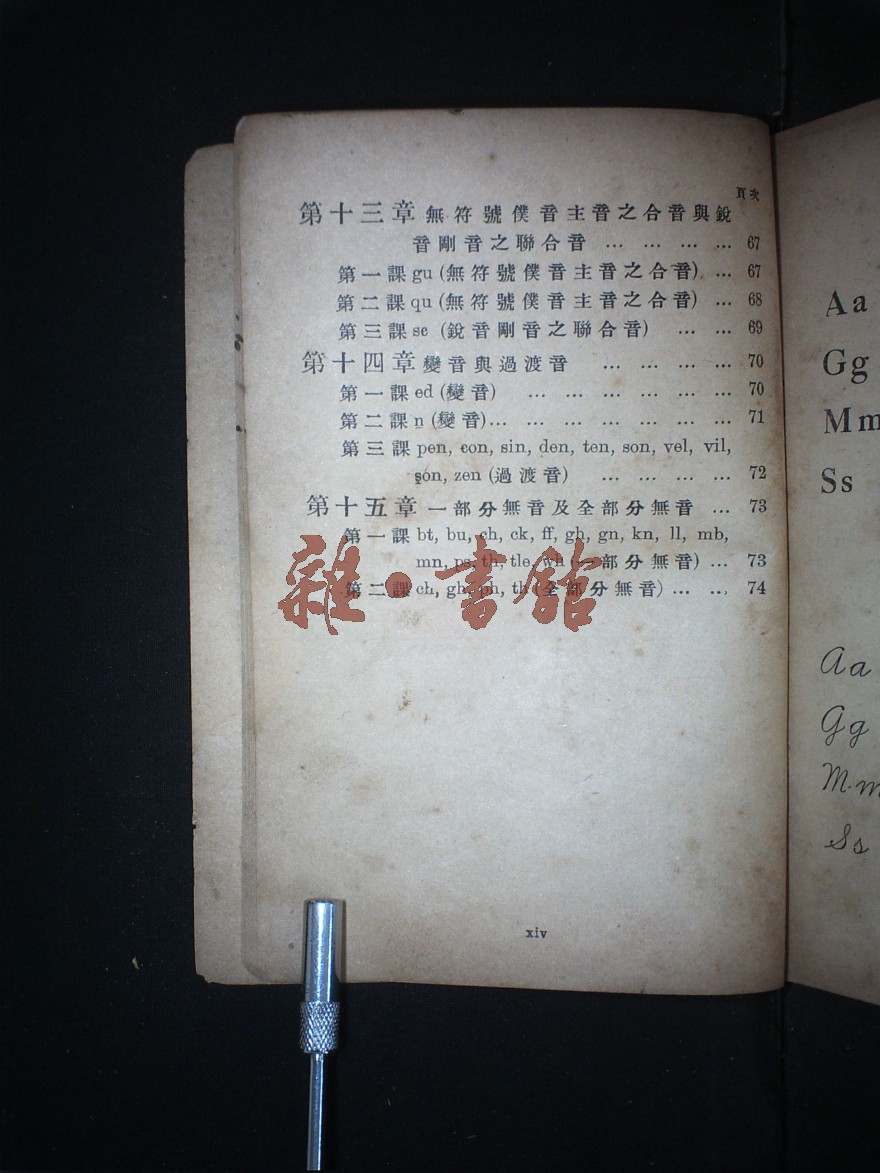 頁次
第十三章 無符號僕音主音之合音與銳
音剛音之聯合音 … … … … 67
第一課 gu (無符號僕音主音之合音) … 67
第二課 qu (無符號僕音主音之合音) … 68
第三課 sc (銳音剛音之聯合音) … … 69
第十四章 變音與過渡音 … … … … 70
第一課 ed (變音) … … … … … … 70
第二課 n (變音)… … … … … … … 71
第三課 pen, con, sin, den, ten, son, vel, vil,
son, zen (過渡音) … … … … 72
第十五章 一部分無音及全部分無音 … 73
第一課 bt, bu, ch, ck, ff, gh, gn, kn, ll, mb,
mn, ps, th, tle, wh (一部分無音) … 73
第二課 ch, gh, ph, th (全部分無音) … … 74
雜·書館
xiv
Aa
Gg
Mm
Ss
Aa
Gg
Mm
Ss